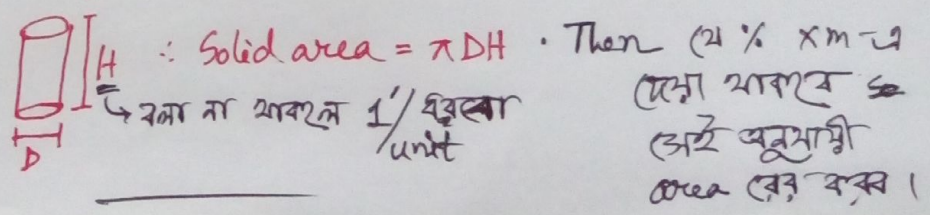 H ∴ Solid area = πDH . Then যে % xm-এ
↳ বলা না থাকলে 1'/ ধরবো দেয়া থাকবে
/unit সেই অনুযায়ী
D area বের করব ।